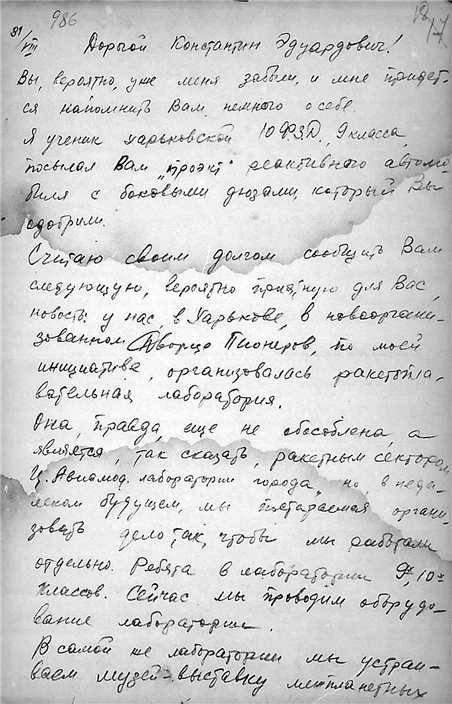 986
18/17
31/VIII Дорогой Константин Эдуардович!
Вы, вероятно, уже меня забыли, и мне придет-
ся напомнить Вам немного о себе.
Я ученик харьковской 10 ФЗД, 9 класса,
посылал Вам „проэкт" реактивного автомо-
биля с боковыми дюзами, который Вы
одобрили.
Считаю своим долгом сообщить Вам
следующую, вероятно приятную для Вас,
новость: у нас в Харькове, в новооргани-
зованном Дворце Пионеров, по моей
инициативе, организовалась ракетпла-
вательная лаборатория.
Она, правда, еще не обособлена, а
является, так сказать, ракетным сектором
Ц. Авиамод. лаборатории города, но, в неда-
леком будущем, мы постараемся органи-
зовать дело так, чтобы мы работали
отдельно. Ребята в лаборатории 9х-10х
классов. Сейчас мы проводим оборудо-
вание лаборатории.
В самой же лаборатории мы устраи-
ваем музей-выставку межпланетных